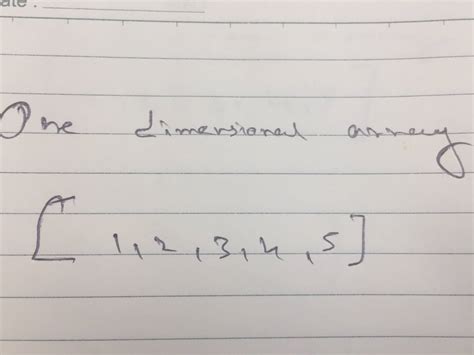 ate :
One dimensional array
[ 1, 2, 3, 4, 5 ]